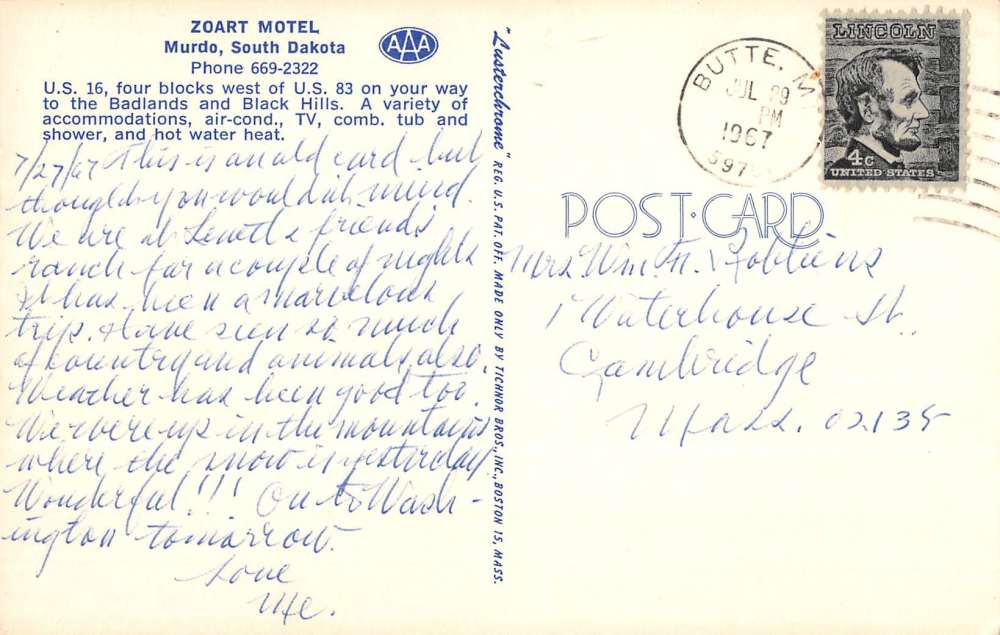 ZOART MOTEL
Murdo, South Dakota
Phone 669-2322
AAA
U.S. 16, four blocks west of U.S. 83 on your way
to the Badlands and Black Hills. A variety of
accommodations, air-cond., TV, comb. tub and
shower, and hot water heat.
7/27/67 This is an old card but
thought you would n't mind.
We are at & friends
ranch for a couple of nights
It has been a marvelous
trip. Have seen so much
of country and animals, also.
Weather has been good too.
We were up in the mountains
where the snow is yesterday.
Wonderful!!! On to Wash-
ington tomorrow.
Love
Me.
"Lusterchrome" REG. U.S. PAT. OFF. MADE ONLY BY TICHNOR BROS., INC., BOSTON 15, MASS.
BUTTE, M
JUL 29
PM
1967
597
LINCOLN
4c
UNITED STATES
POST CARD
Mrs Wm. H. Robbins
1 Waterhouse St.
Cambridge
Mass. 02138